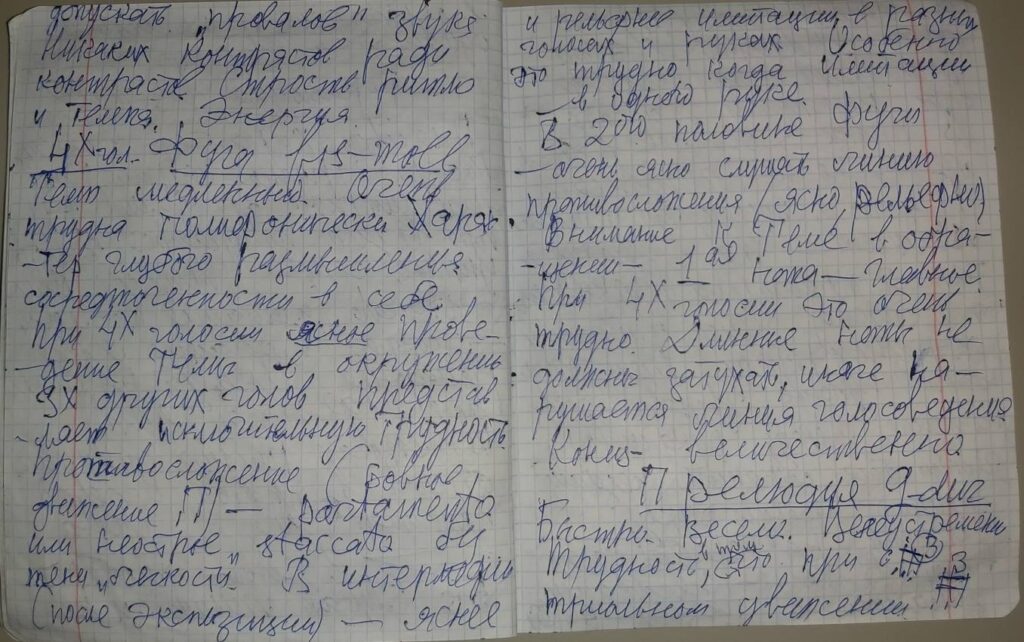 допускать "провалов" звука
Никаких контрастов ради
контраста. Строгость ритма
и темпа. Энергия.
4х гол. Фуга
Темп медленный. Очень
трудна полифонически. Харак-
-тер глубого размышления
сосредоточенности в себе
При 4х голосии ясное прове-
-дение темы в окружении
3х других голов представ
-ляет исключительную трудность.
Противосложение (ровное
движение) — portamento
или неострые "staccato"
"легкости". В интермедии
(после экспозиции) — яснее
и рельефнее имитации в разных
голосах и руках. Особенно
это трудно, когда имитации
— в одной руке.
В 2ой половине фуги
— очень ясно слушать линию
противосложения (ясно, рельефно)
Внимание к теме в обра-
-щении — 1ая нота — главное
При 4х голосии это очень
трудно. Длинные ноты не
должны затухать, иначе на-
рушается линия голосоведения.
Конец величественно
Прелюдия
Быстро. Весело. Целеустремлен
Трудность, в том что при 3
триольном движении 3